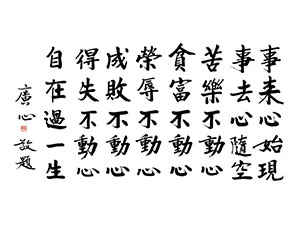 事来心始現
事去心隨空
苦樂不動心
貪富不動心
榮辱不動心
成敗不動心
得失不動心
自在過一生
廣心 敬題